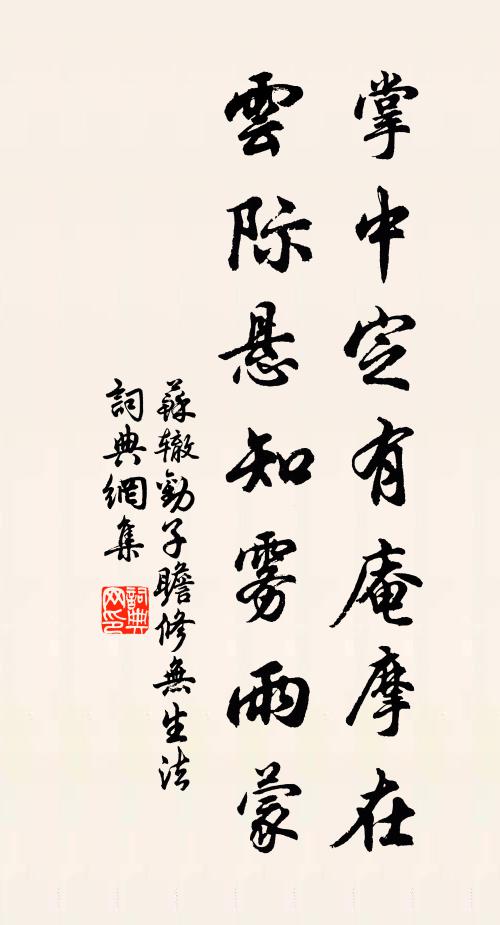 掌中定有庵摩在
雲际悬知雾雨蒙
蘇辙勸子瞻修無生法
詞典網集
詞典网印